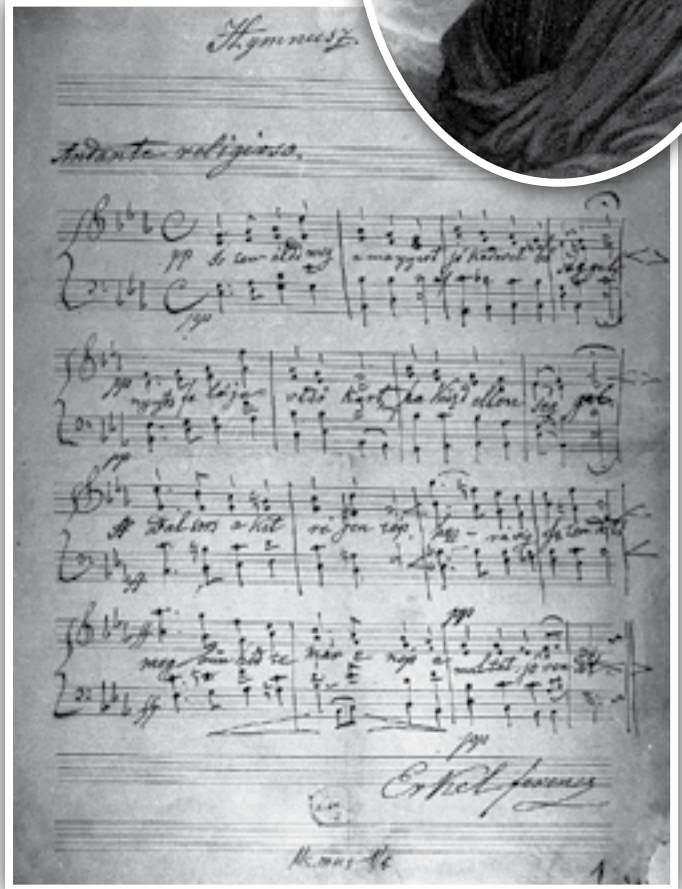 Hymnusz.
Andante religioso.
pp Is ten áldd meg a magyart jó kedvvel bő ség gel
pp
pp nyujts fe léje védő kart ha küzd ellen ség gel.
pp
ff Bal sors a kit ré gen tép, hoz - rá víg
ff
ff meg bűn hőd te már e nép a multat jö ven dőt
ff
pp
pp
Erkel ferencz